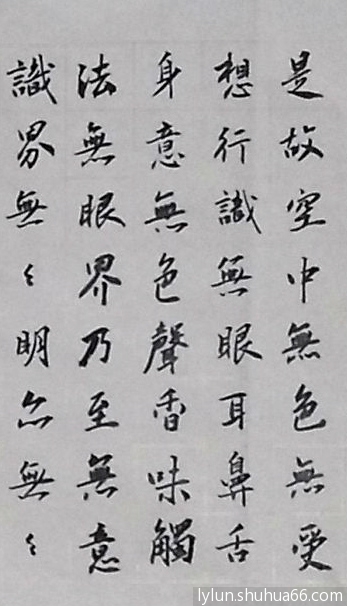 是故空中無色無受
想行識無眼耳鼻舌
身意無色聲香味觸
法無眼界乃至無意
識界無〻明亦無〻
lylun.shuhua66.com